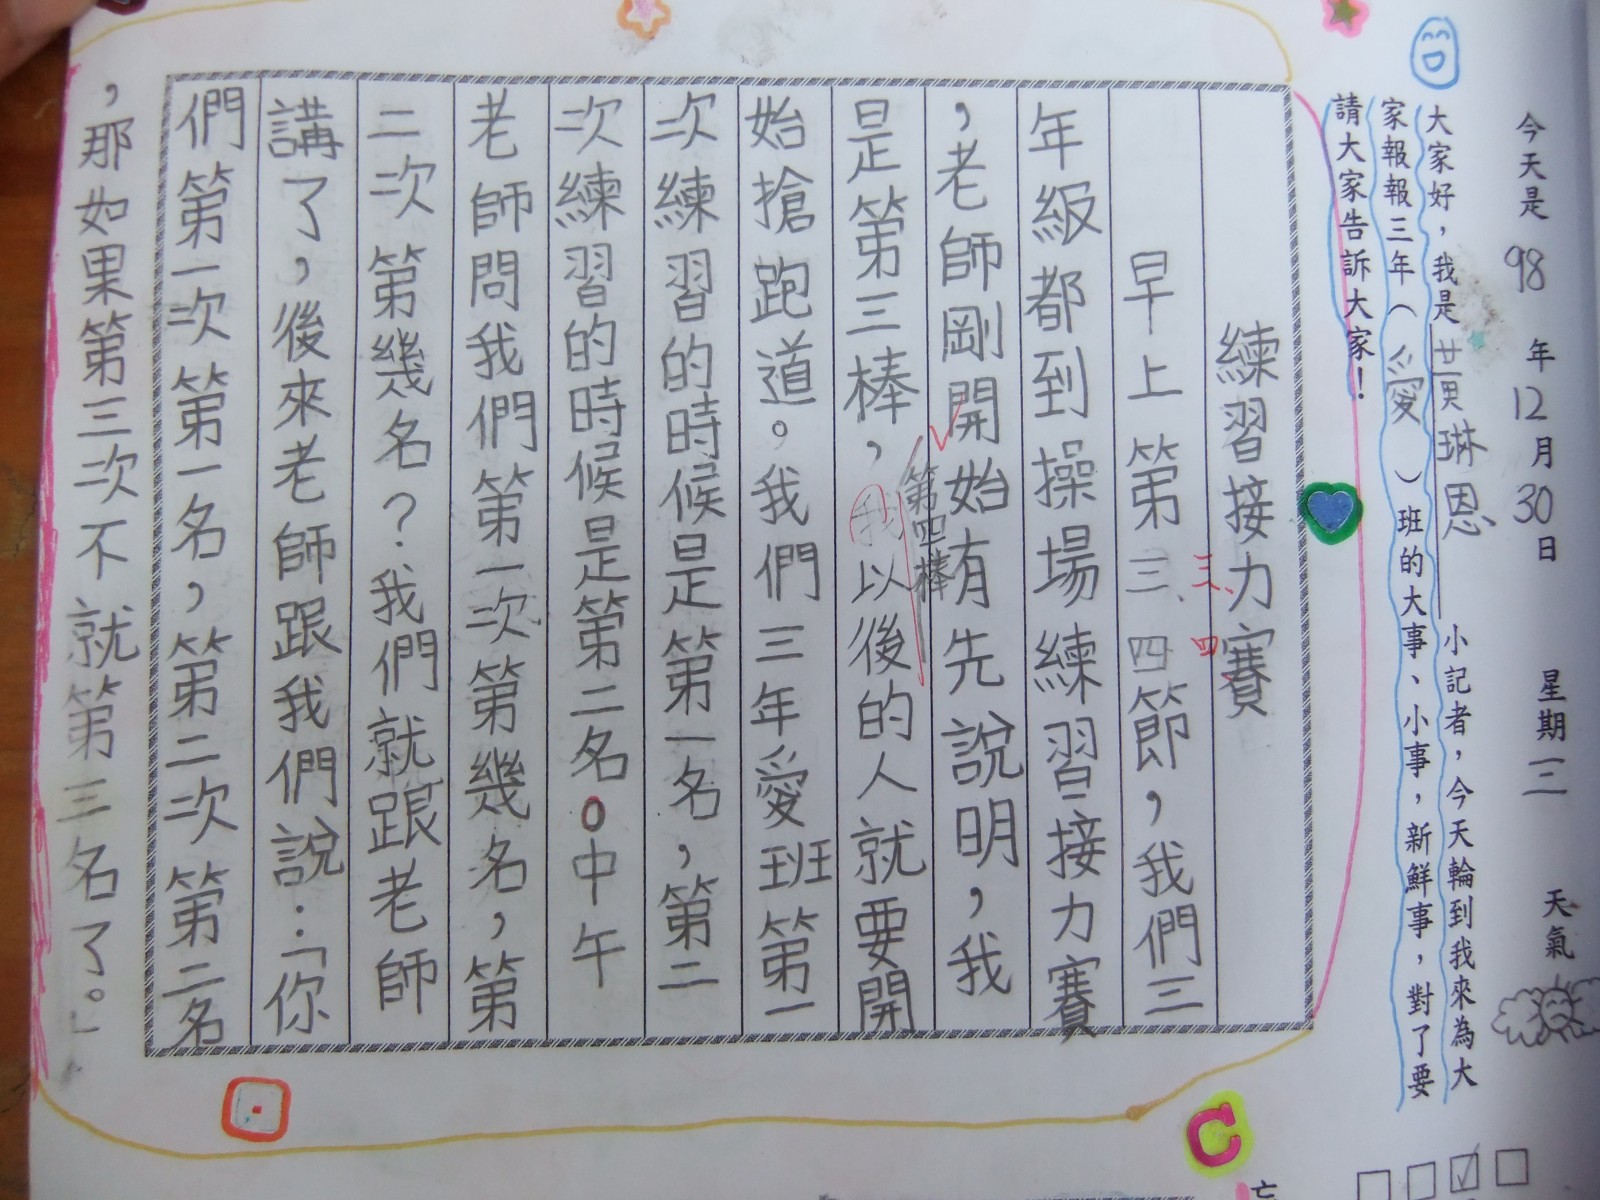 今天是 98 年 12 月 30 日 星期三 天氣
大家好，我是黃琳恩小記者，今天輪到我來為大
家報報三年（愛）班的大事、小事，新鮮事，對了要
請大家告訴大家！
練習接力賽
早上第三、四節，我們三
三、四
年級都到操場練習接力賽
，老師剛開始有先說明，我
是第三棒，我以後的人就要開
第四棒
始搶跑道。我們三年愛班第一
次練習的時候是第一名，第二
次練習的時候是第二名。中午
老師問我們第一次第幾名，第
二次第幾名？我們就跟老師
講了，後來老師跟我們說：「你
們第一次第一名，第二次第二名
，那如果第三次不就第三名了。」
C